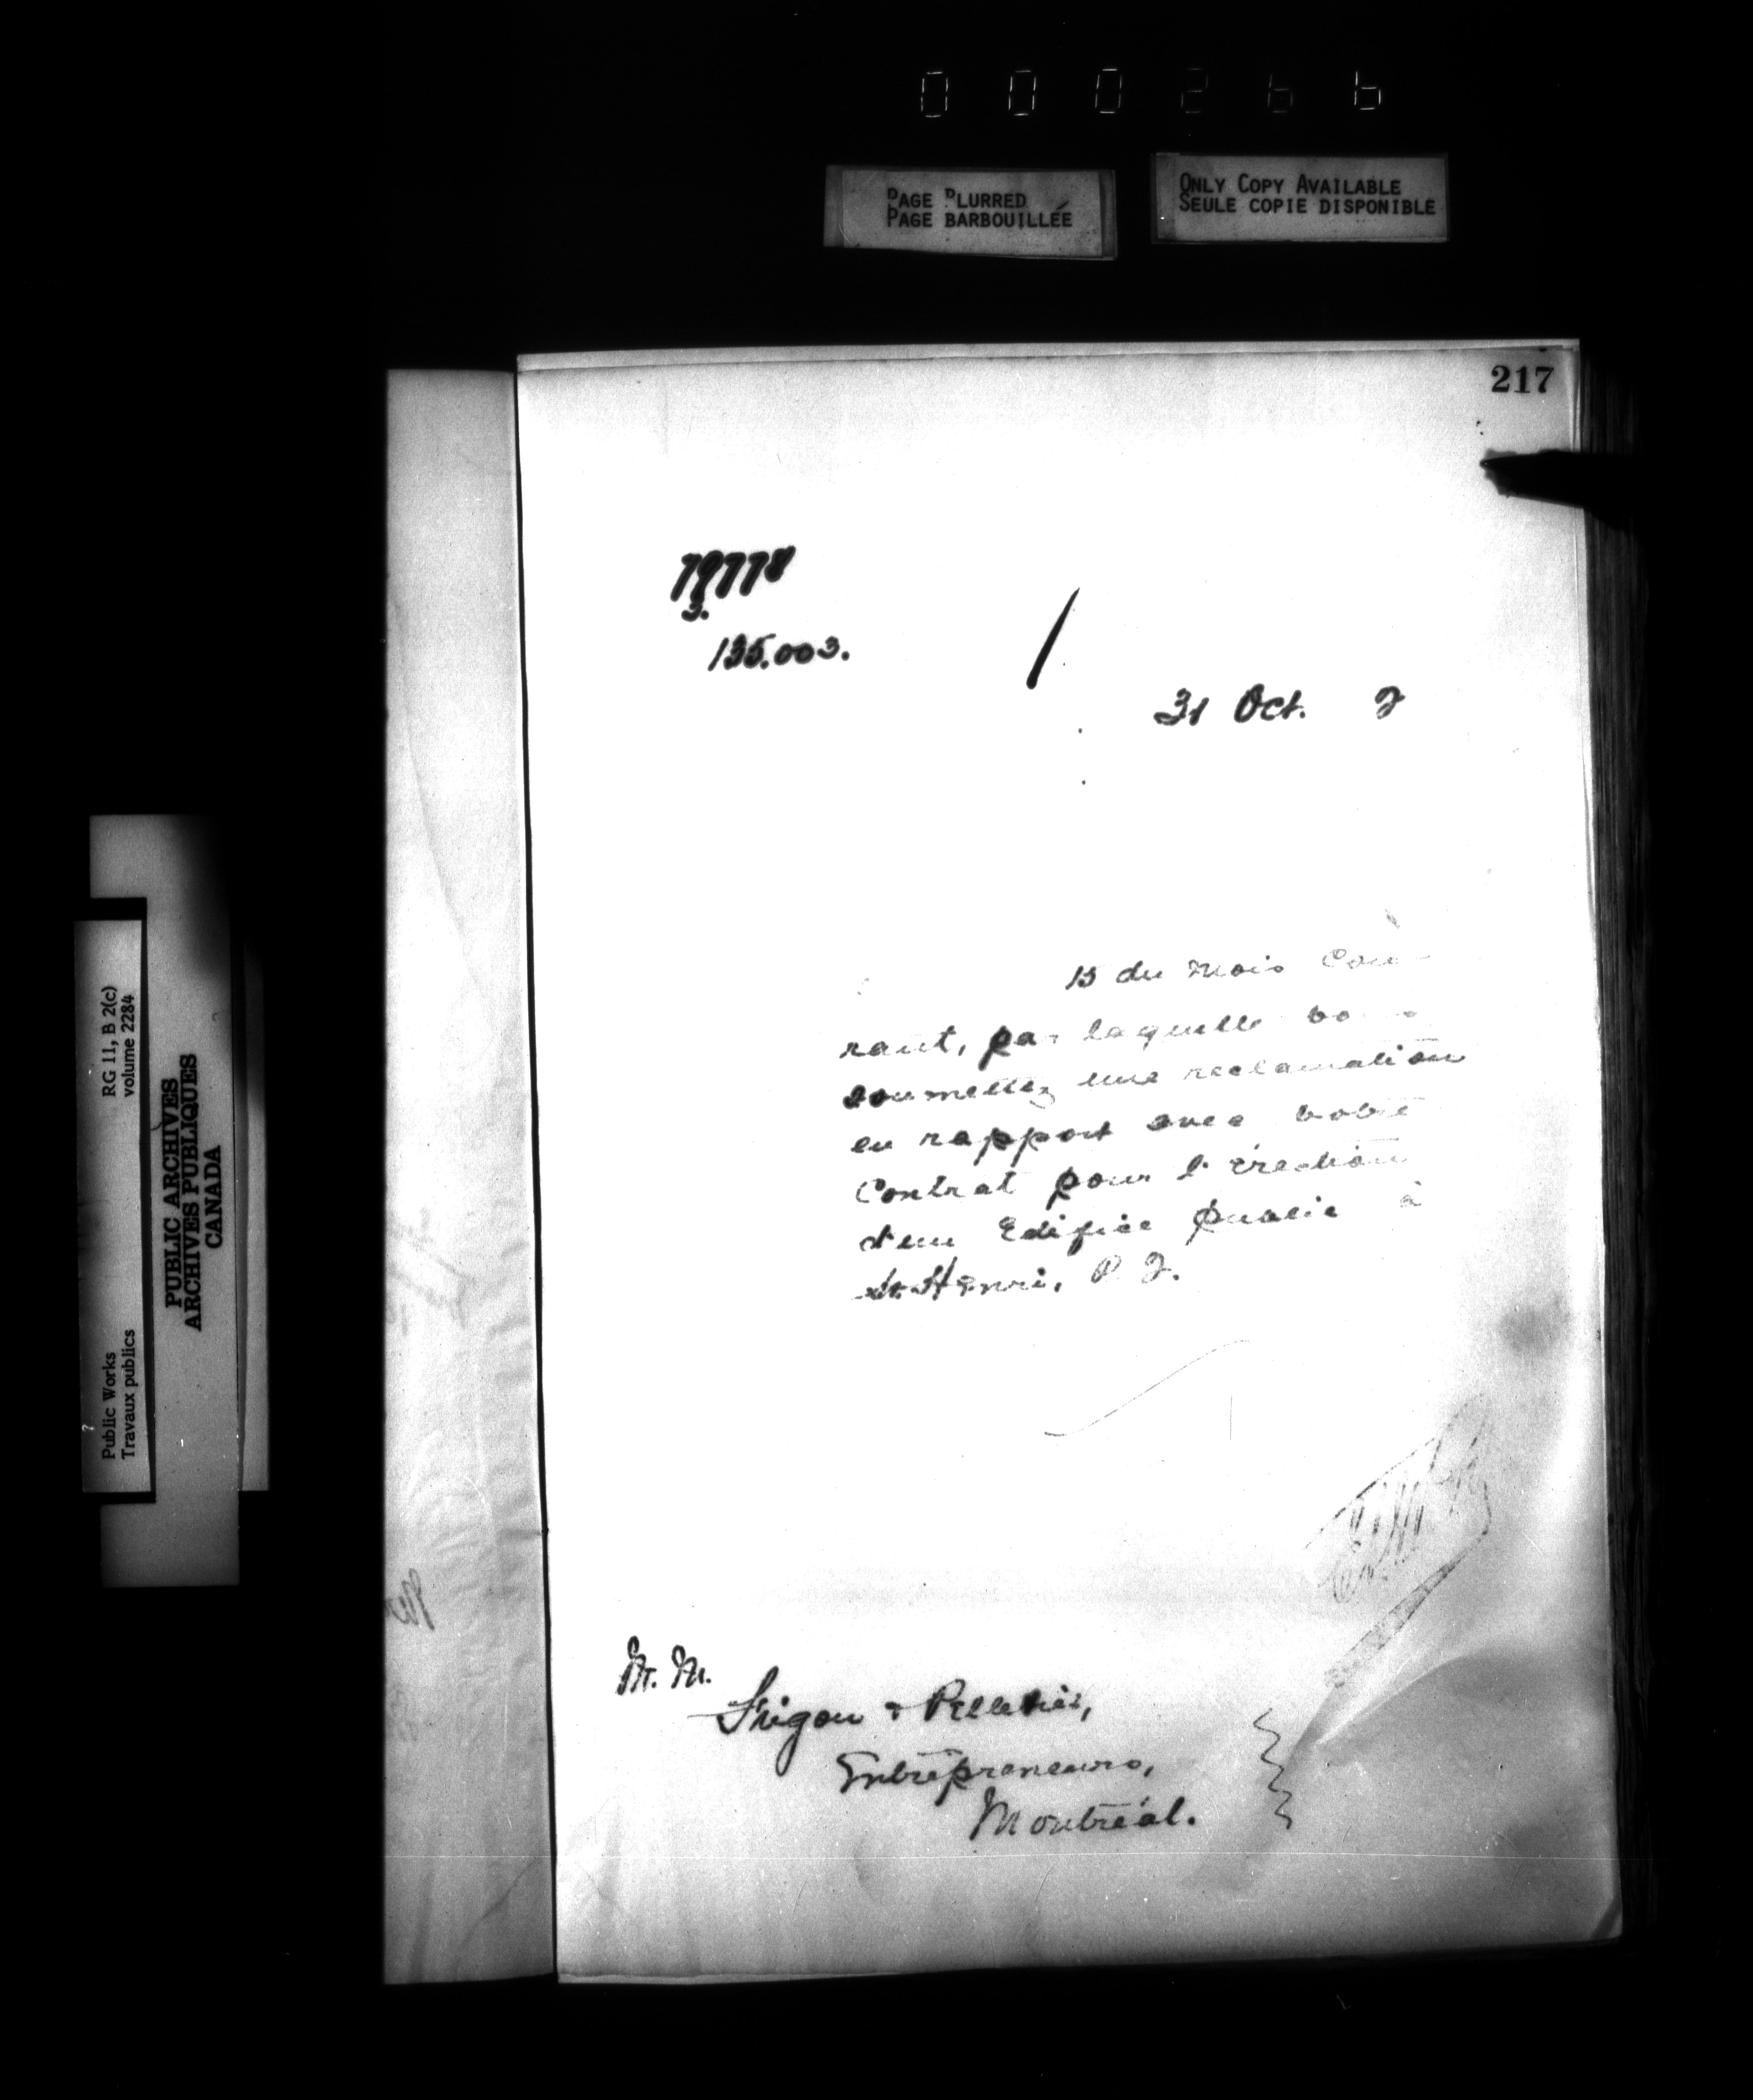 000266
PAGE BLURRED
PAGE BARBOUILLÉE
ONLY COPY AVAILABLE
SEULE COPIE DISPONIBLE
217
79778
3.
135.003.
31 Oct. 2
15 du mois Cou-
rant, par laquelle vous
soumettez une reclamation
en rapport avec votre
Contrat pour l'érection
d'un Edifice public à
St. Henri, P. Q.
M. M.
Frigon & Pelletier,
Entrepreneurs,
Montréal.
RG 11, B 2(c)
volume 2284
Public Works
Travaux publics
PUBLIC ARCHIVES
ARCHIVES PUBLIQUES
CANADA